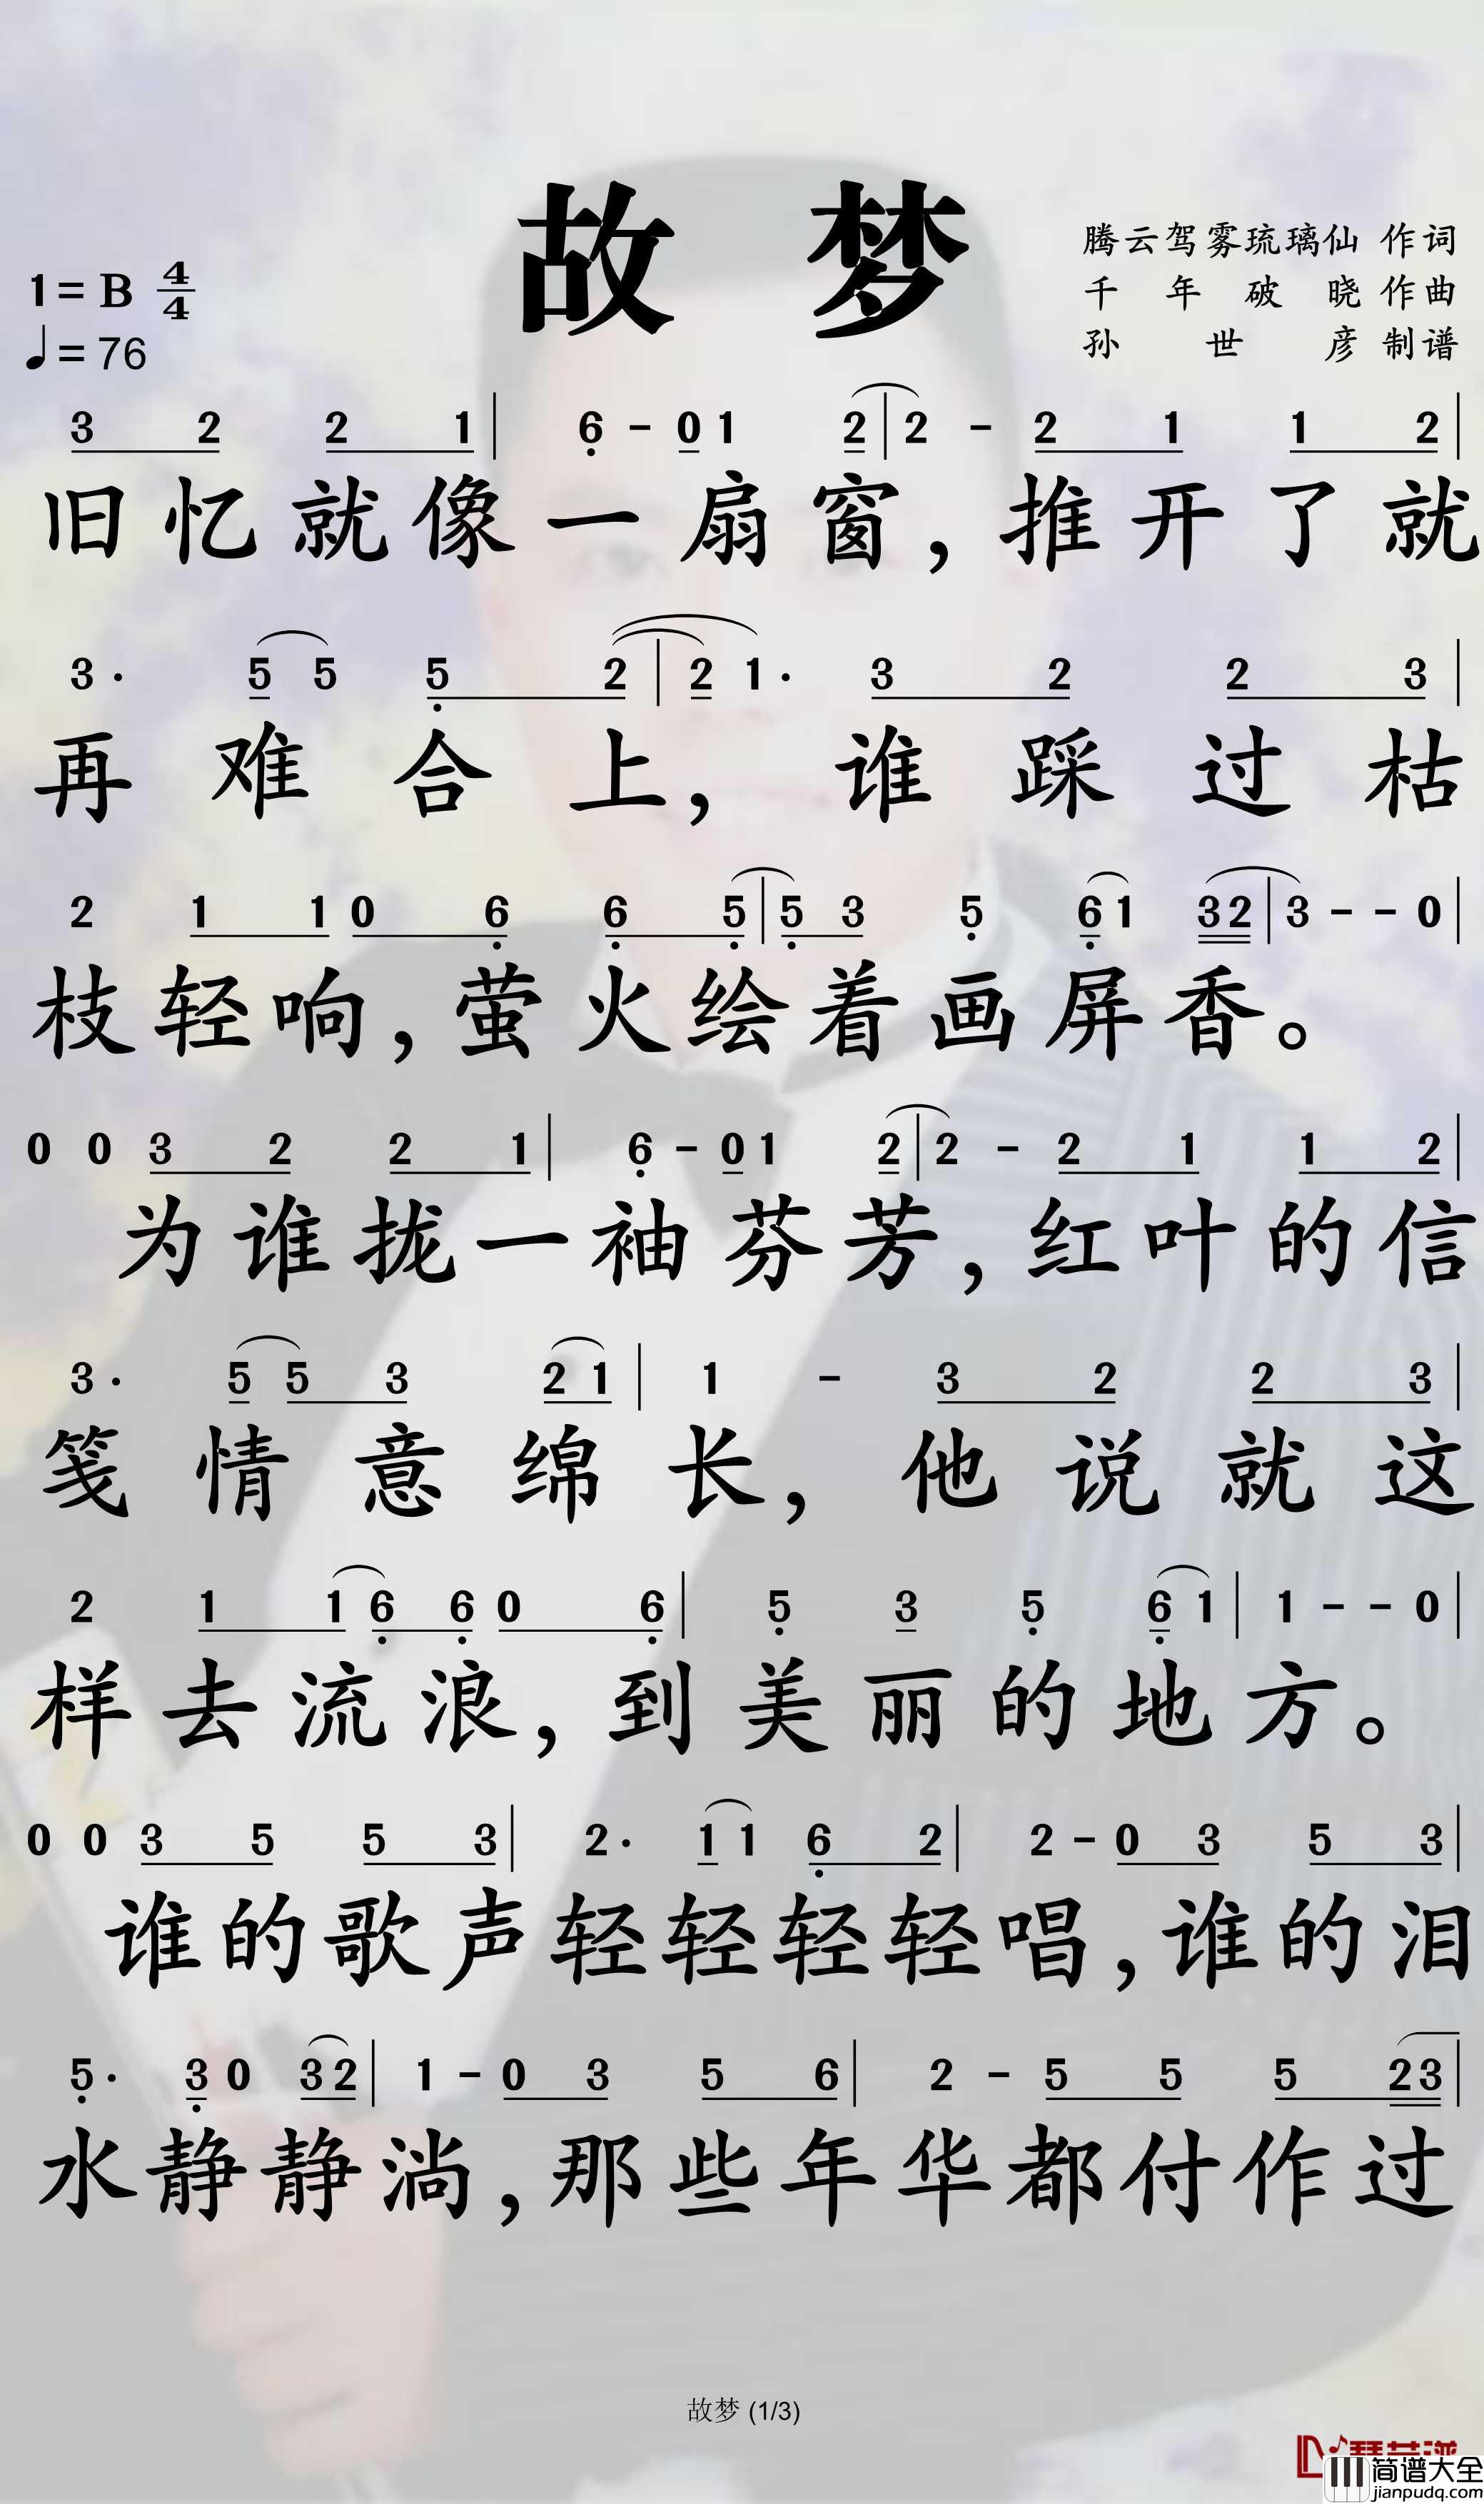 故 梦
腾云驾雾琉璃仙 作词
1= B 4/4
千年破晓 作曲
♩= 76
孙世彦 制谱
3 2 2 1 | 6 - 0 1 2 | 2 - 2 1 1 2 |
旧忆就像一扇窗，推开了就
3· 5 5 5 2 | 2 1· 3 2 2 3 |
再难合上，谁踩过枯
2 1 1 0 6 6 5 | 5 3 5 6 1 3 2 | 3 - - 0 |
枝轻响，萤火绘着画屏香。
0 0 3 2 2 1 | 6 - 0 1 2 | 2 - 2 1 1 2 |
为谁拢一袖芬芳，红叶的信
3· 5 5 3 2 1 | 1 - 3 2 2 3 |
笺情意绵长，他说就这
2 1 1 6 6 0 6 | 5 3 5 6 1 | 1 - - 0 |
样去流浪，到美丽的地方。
0 0 3 5 5 3 | 2· 1 1 6 2 | 2 - 0 3 5 3 |
谁的歌声轻轻轻轻唱，谁的泪
5· 3 0 3 2 | 1 - 0 3 5 6 | 2 - 5 5 5 2 3 |
水静静淌，那些年华都付作过
故梦 (1/3)
简谱大全
jianpudq.com